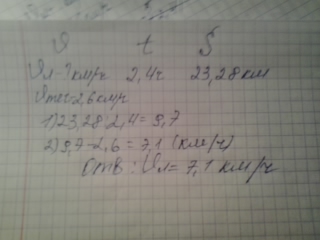 V t S
Vл-? км/ч 2,4ч 23,28 км
Vтеч-2,6 км/ч
1) 23,28:2,4= 9,7
2) 9,7-2,6 = 7,1 (км/ч)
Отв: Vл= 7,1 км/ч